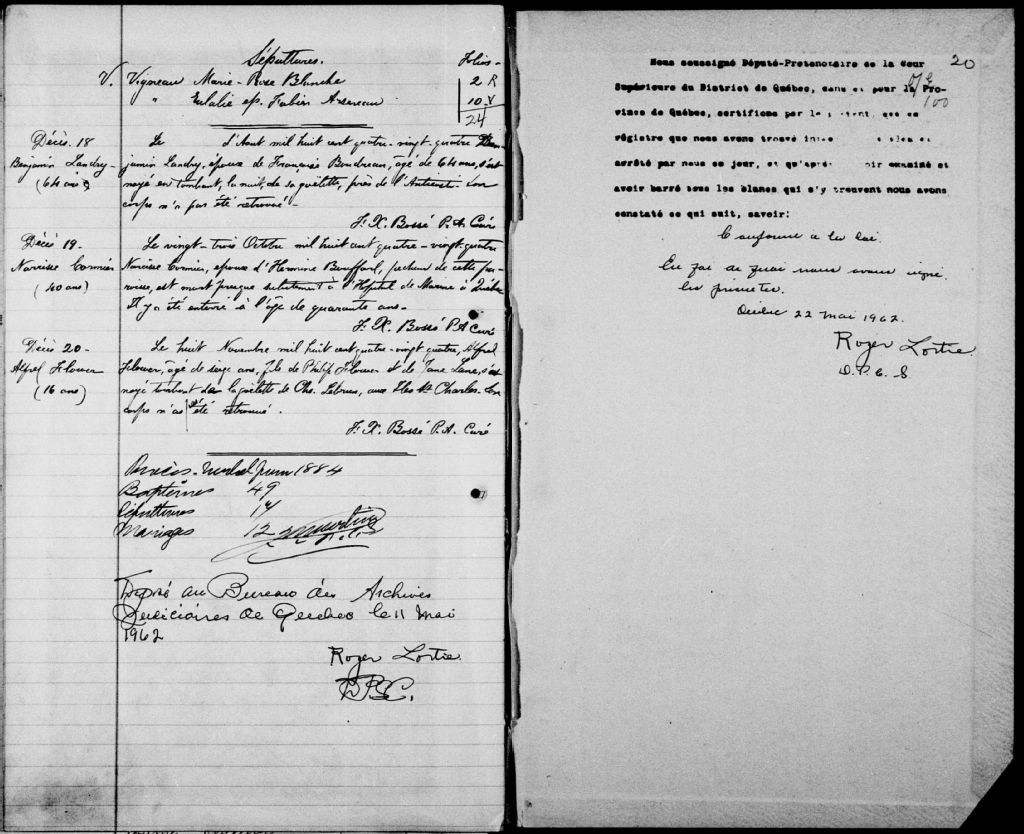 Sépultures. Folios -
V. Vigneau Marie-Rose Blanche 2 R
" Eulalie ep. Fabien Arseneau 10 V
24
Décès. 18
Benjamin Landry-
(64 ans)
Le d'Aout mil huit cent quatre-vingt-quatre Ben-
jamin Landry, époux de Françoise Boudreau, âgé de 64 ans, s'est
noyé en tombant, la nuit, de sa goëlette, près de l'Anticosti. Son
corps n'a pas été retrouvé -
F. X. Bossé P. A. Curé
Décès 19 -
Narcisse Cormier
(40 ans)
Le vingt-trois Octobre mil huit cent quatre-vingt quatre
Narcisse Cormier, époux d'Hermine Bouffard, pecheur de cette pa-
roisse, est mort presque subitement à l'Hopital de Marine à Québec
Il y a été enterré à l'âge de quarante ans -
F. X. Bossé P. A Curé
Décès 20 -
Alfred Flower
(16 ans)
Le huit Novembre mil huit cent quatre-vingt quatre, Alfred
Flower, âgé de seize ans, fils de Philip Flower et de Jane Lane, s'est
noyé tombant de la goëlette de Chs. Lebrun, aux Iles St Charles. Son
corps n'a pas été retrouvé.
F. X. Bossé P. A. Curé
Procès-verbal 1884
Baptêmes 49
Sépultures 14
Mariages 12
Déposé au Bureau des Archives
Judiciaires de Quebec le 11 Mai
1962
Roger Lortie
D.P.C.
20
Nous soussigné Député-Protonotaire de la Cour
Supérieure du District de Québec, dans et pour la Pro-
vince de Québec, certifions par le que ce
régistre que nous avons trouvé et
arrêté par nous ce jour, et qu'après examiné et
avoir barré tous les blancs qui s'y trouvent nous avons
constaté ce qui suit, savoir:
Conforme à la loi.
En foi de quoi nous avons signé
les présentes.
Québec 22 mai 1962.
Roger Lortie
D. P. C. S